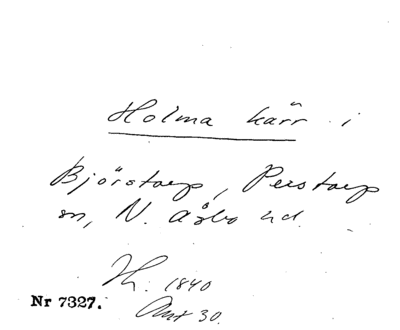 Holma kärr i
Björstorp, Perstorp
sn, N. Åsbo hd.
H. 1840
Ant 30.
Nr 7327.